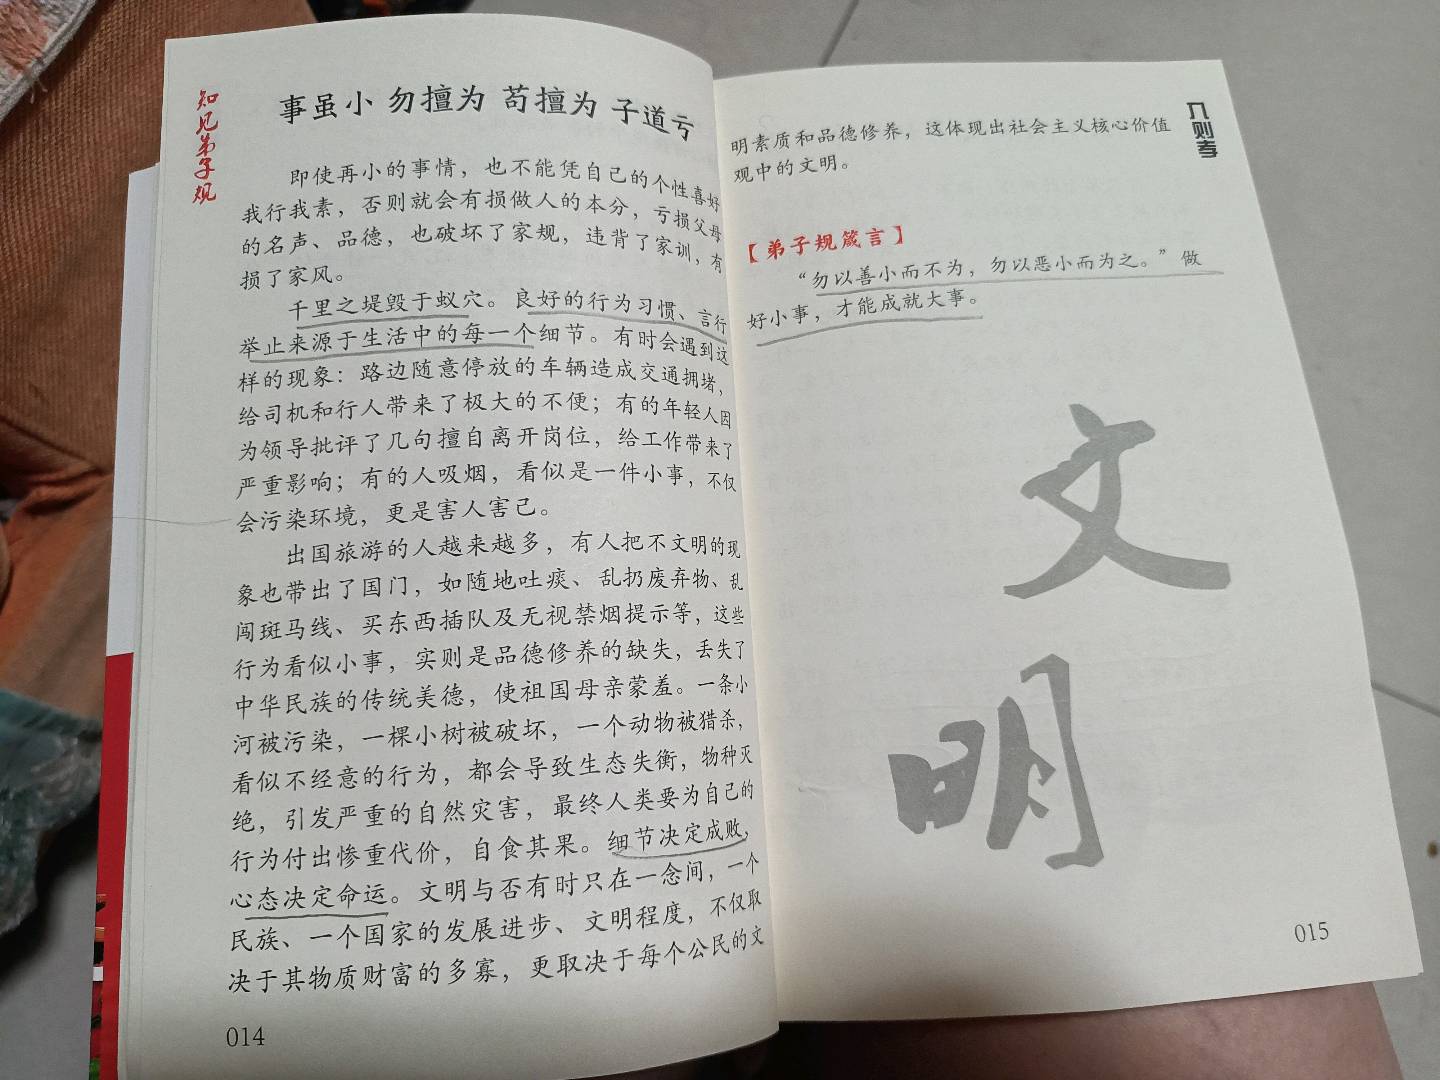 知见弟子规
事虽小 勿擅为 苟擅为 子道亏
即使再小的事情，也不能凭自己的个性喜好
我行我素，否则就会有损做人的本分，亏损父母
的名声、品德，也破坏了家规，违背了家训，有
损了家风。
千里之堤毁于蚁穴。良好的行为习惯、言行
举止来源于生活中的每一个细节。有时会遇到这
样的现象：路边随意停放的车辆造成交通拥堵，
给司机和行人带来了极大的不便；有的年轻人因
为领导批评了几句擅自离开岗位，给工作带来了
严重影响；有的人吸烟，看似是一件小事，不仅
会污染环境，更是害人害己。
出国旅游的人越来越多，有人把不文明的现
象也带出了国门，如随地吐痰、乱扔废弃物、乱
闯斑马线、买东西插队及无视禁烟提示等，这些
行为看似小事，实则是品德修养的缺失，丢失了
中华民族的传统美德，使祖国母亲蒙羞。一条小
河被污染，一棵小树被破坏，一个动物被猎杀，
看似不经意的行为，都会导致生态失衡，物种灭
绝，引发严重的自然灾害，最终人类要为自己的
行为付出惨重代价，自食其果。细节决定成败，
心态决定命运。文明与否有时只在一念间，一个
民族、一个国家的发展进步、文明程度，不仅取
决于其物质财富的多寡，更取决于每个公民的文
014
入则孝
明素质和品德修养，这体现出社会主义核心价值
观中的文明。
【弟子规箴言】
“勿以善小而不为，勿以恶小而为之。”做
好小事，才能成就大事。
文
明
015